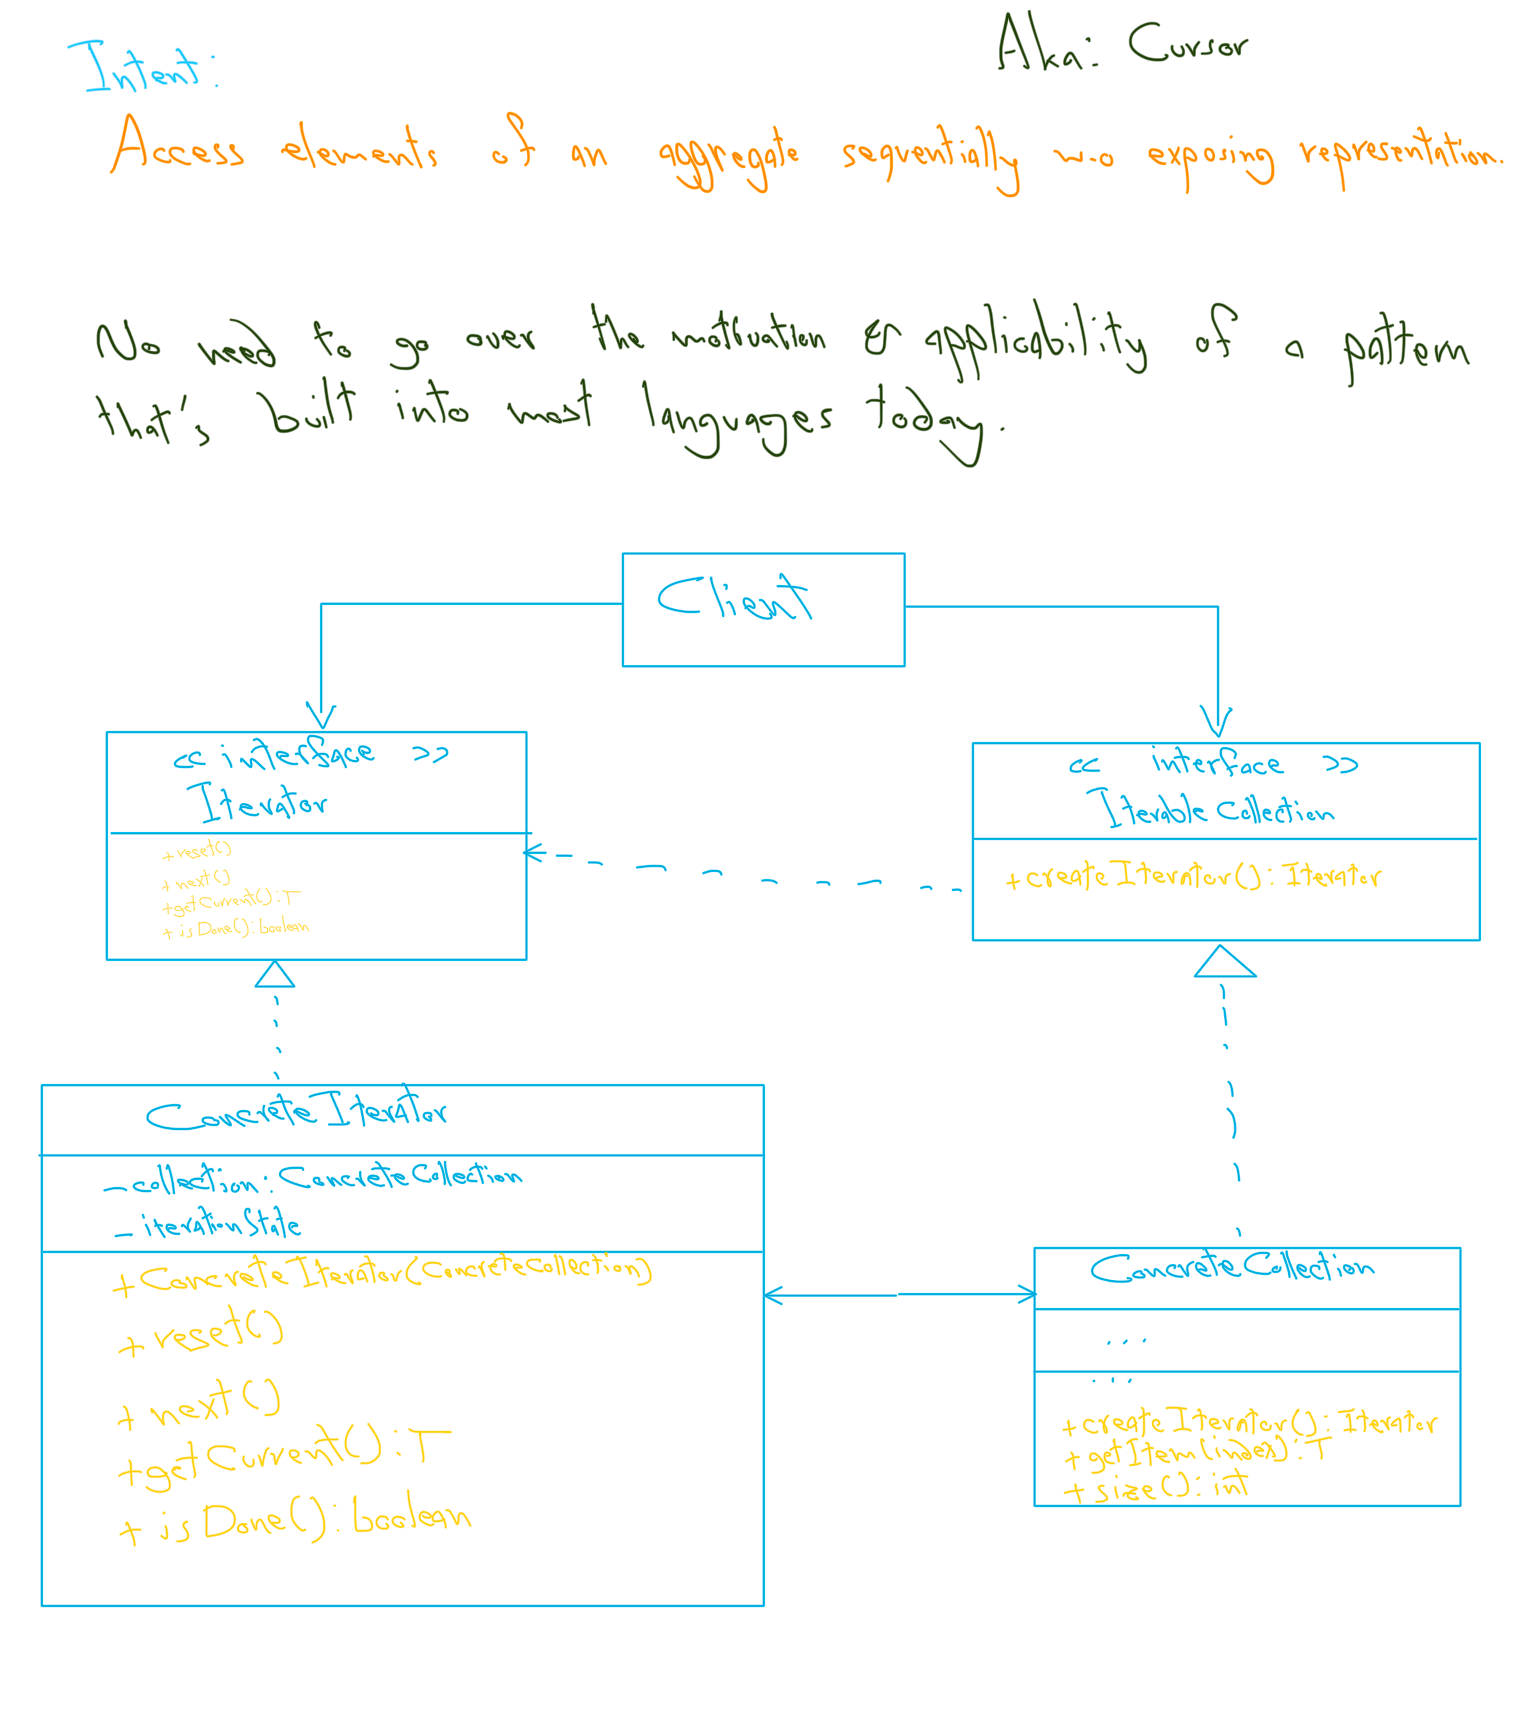 Intent:
Aka: Cursor
Access elements of an aggregate sequentially w-o exposing representation.
No need to go over the motivation & applicability of a pattern
that's built into most languages today.
Client
<< interface >>
Iterator
+ reset()
+ next()
+getCurrent():T
+ isDone():boolean
<< interface >>
IterableCollection
+createIterator():Iterator
ConcreteIterator
-collection:ConcreteCollection
-iterationState
+ConcreteIterator(ConcreteCollection)
+ reset()
+ next()
+getCurrent():T
+ isDone():boolean
ConcreteCollection
...
...
+createIterator():Iterator
+getItem(index):T
+size():int